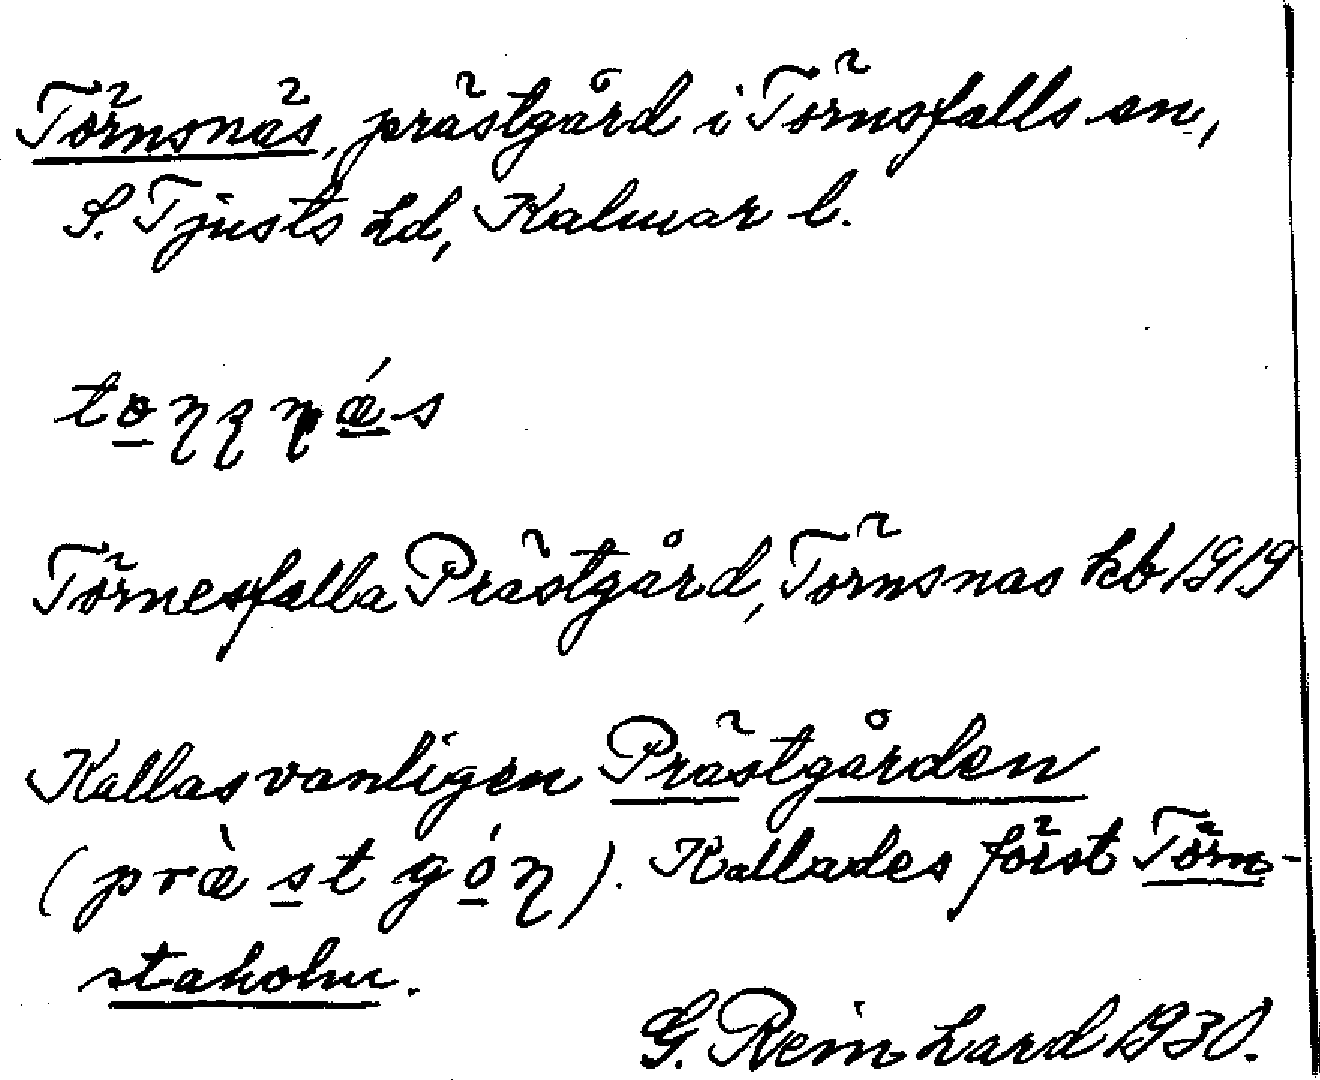 Törnsnäs, prästgård i Törnsfalls sn,
S. Tjusts hd, Kalmar l.
Törnesfalla Prästgård, Törnsnäs kb 1919
Kallas vanligen Prästgården
(præstgón). Kallades först Törn-
staholm.
G. Reinhard 1930.